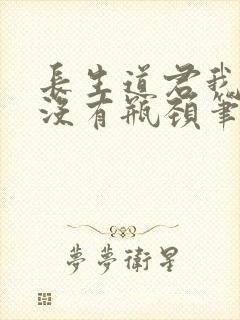 長生道君我
沒有瓶頸筆
夢夢衛星